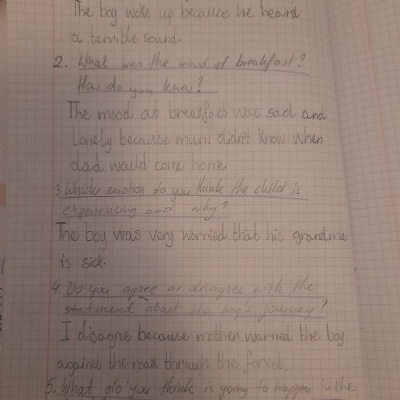 The boy woke up because he heard
a terrible sound.
2. What was the mood at breakfast?
How do you know?
The mood at breakfast was sad and
lonely because mum didn't know when
dad would come home.
3. Which emotion do you think the child is
experiencing and why?
The boy was very worried that his grandma
is sick.
4. Do you agree or disagree with the
statment about the boy's journey?
I disagree because mother warned the boy
against the road through the forest.
5. What do you think is going to happen in the